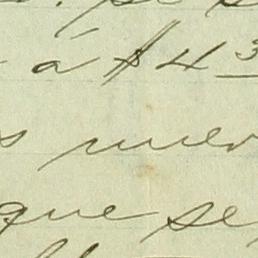 á $43
s nuev
que se